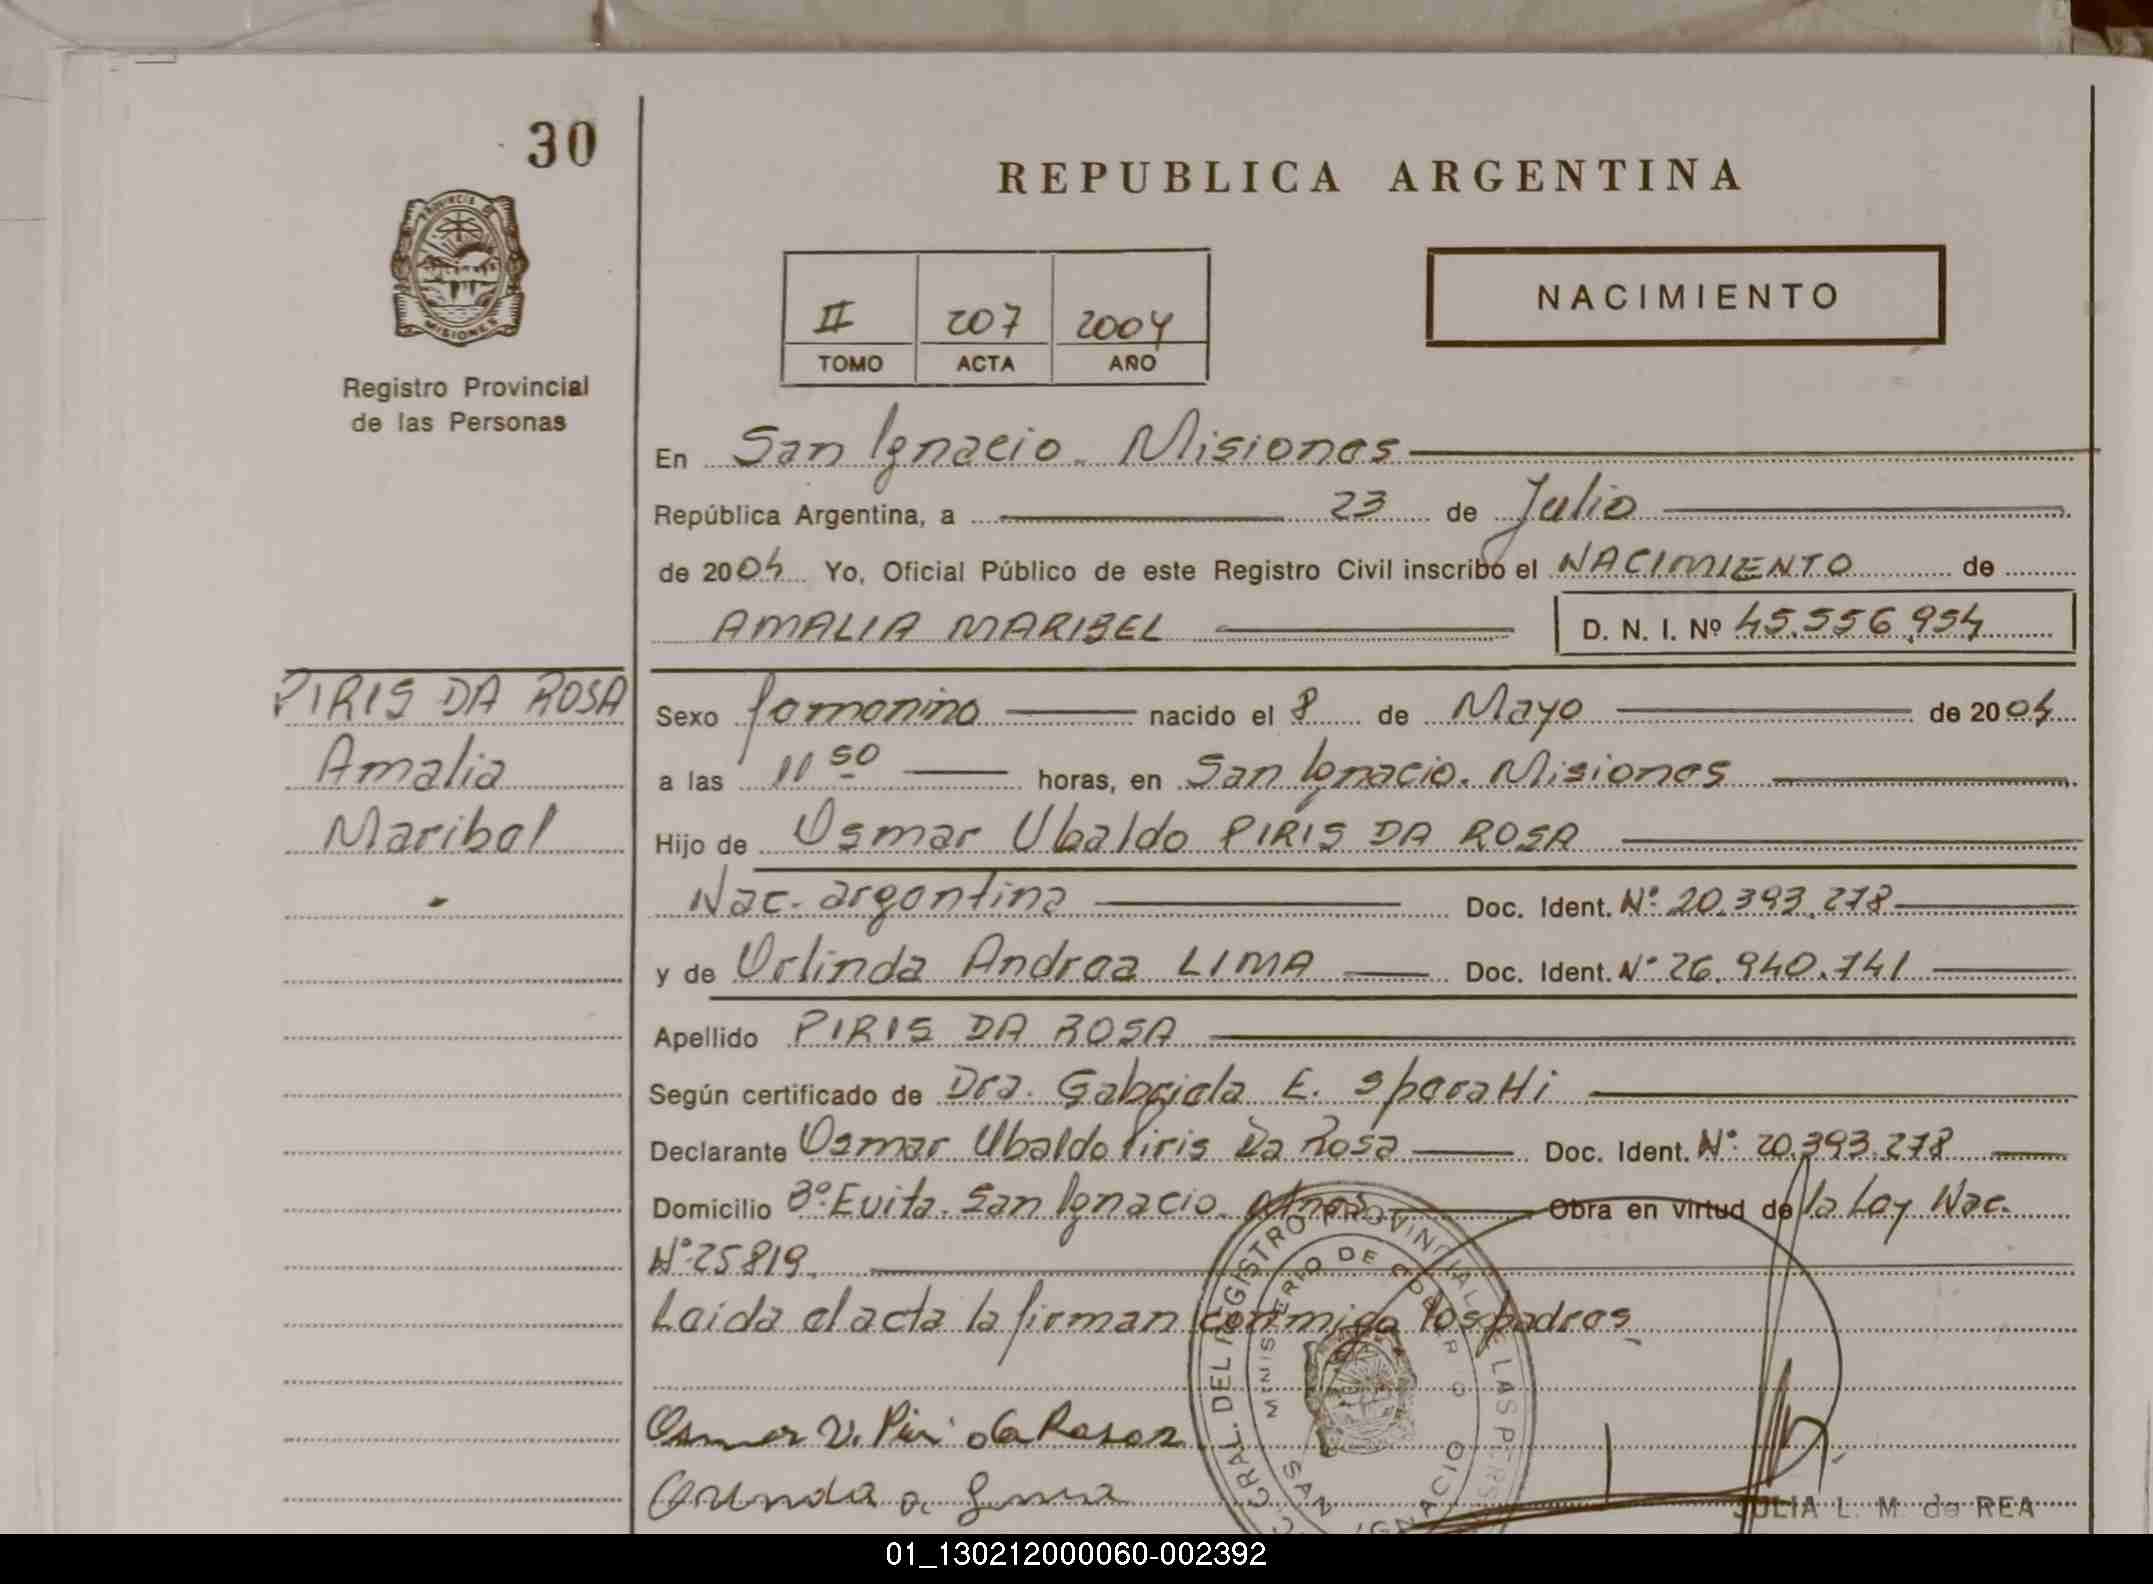 30
REPUBLICA ARGENTINA
PROVINCIA DE
MISIONES
Registro Provincial
de las Personas
II 207 2004
TOMO ACTA AÑO
NACIMIENTO
En San Ignacio. Misiones
República Argentina, a 23 de Julio
de 2004 Yo, Oficial Público de este Registro Civil inscribo el NACIMIENTO de
AMALIA MARIBEL D. N. I. Nº 45.556.954
PIRIS DA ROSA
Amalia
Maribel
Sexo femenino nacido el 8 de Mayo de 2004
a las 11 50 horas, en San Ignacio. Misiones
Hijo de Osmar Ubaldo PIRIS DA ROSA
Nac. argentina Doc. Ident. Nº 20.393.278
y de Orlinda Andrea LIMA Doc. Ident. Nº 26.940.741
Apellido PIRIS DA ROSA
Según certificado de Dra. Gabriela E. Speratti
Declarante Osmar Ubaldo Piris Da Rosa Doc. Ident. Nº 20.393.278
Domicilio Bº Evita. San Ignacio. Mnes Obra en virtud de la Ley Nac.
Nº 25819.
Leida el acta la firman conmigo los padres
GRAL. DEL REGISTRO PROVINCIAL DE LAS PERS
MINISTERIO DE GOBIERNO
SAN IGNACIO
Osmar U. Piri da Rosa
JULIA L. M. de REA
01_130212000060-002392